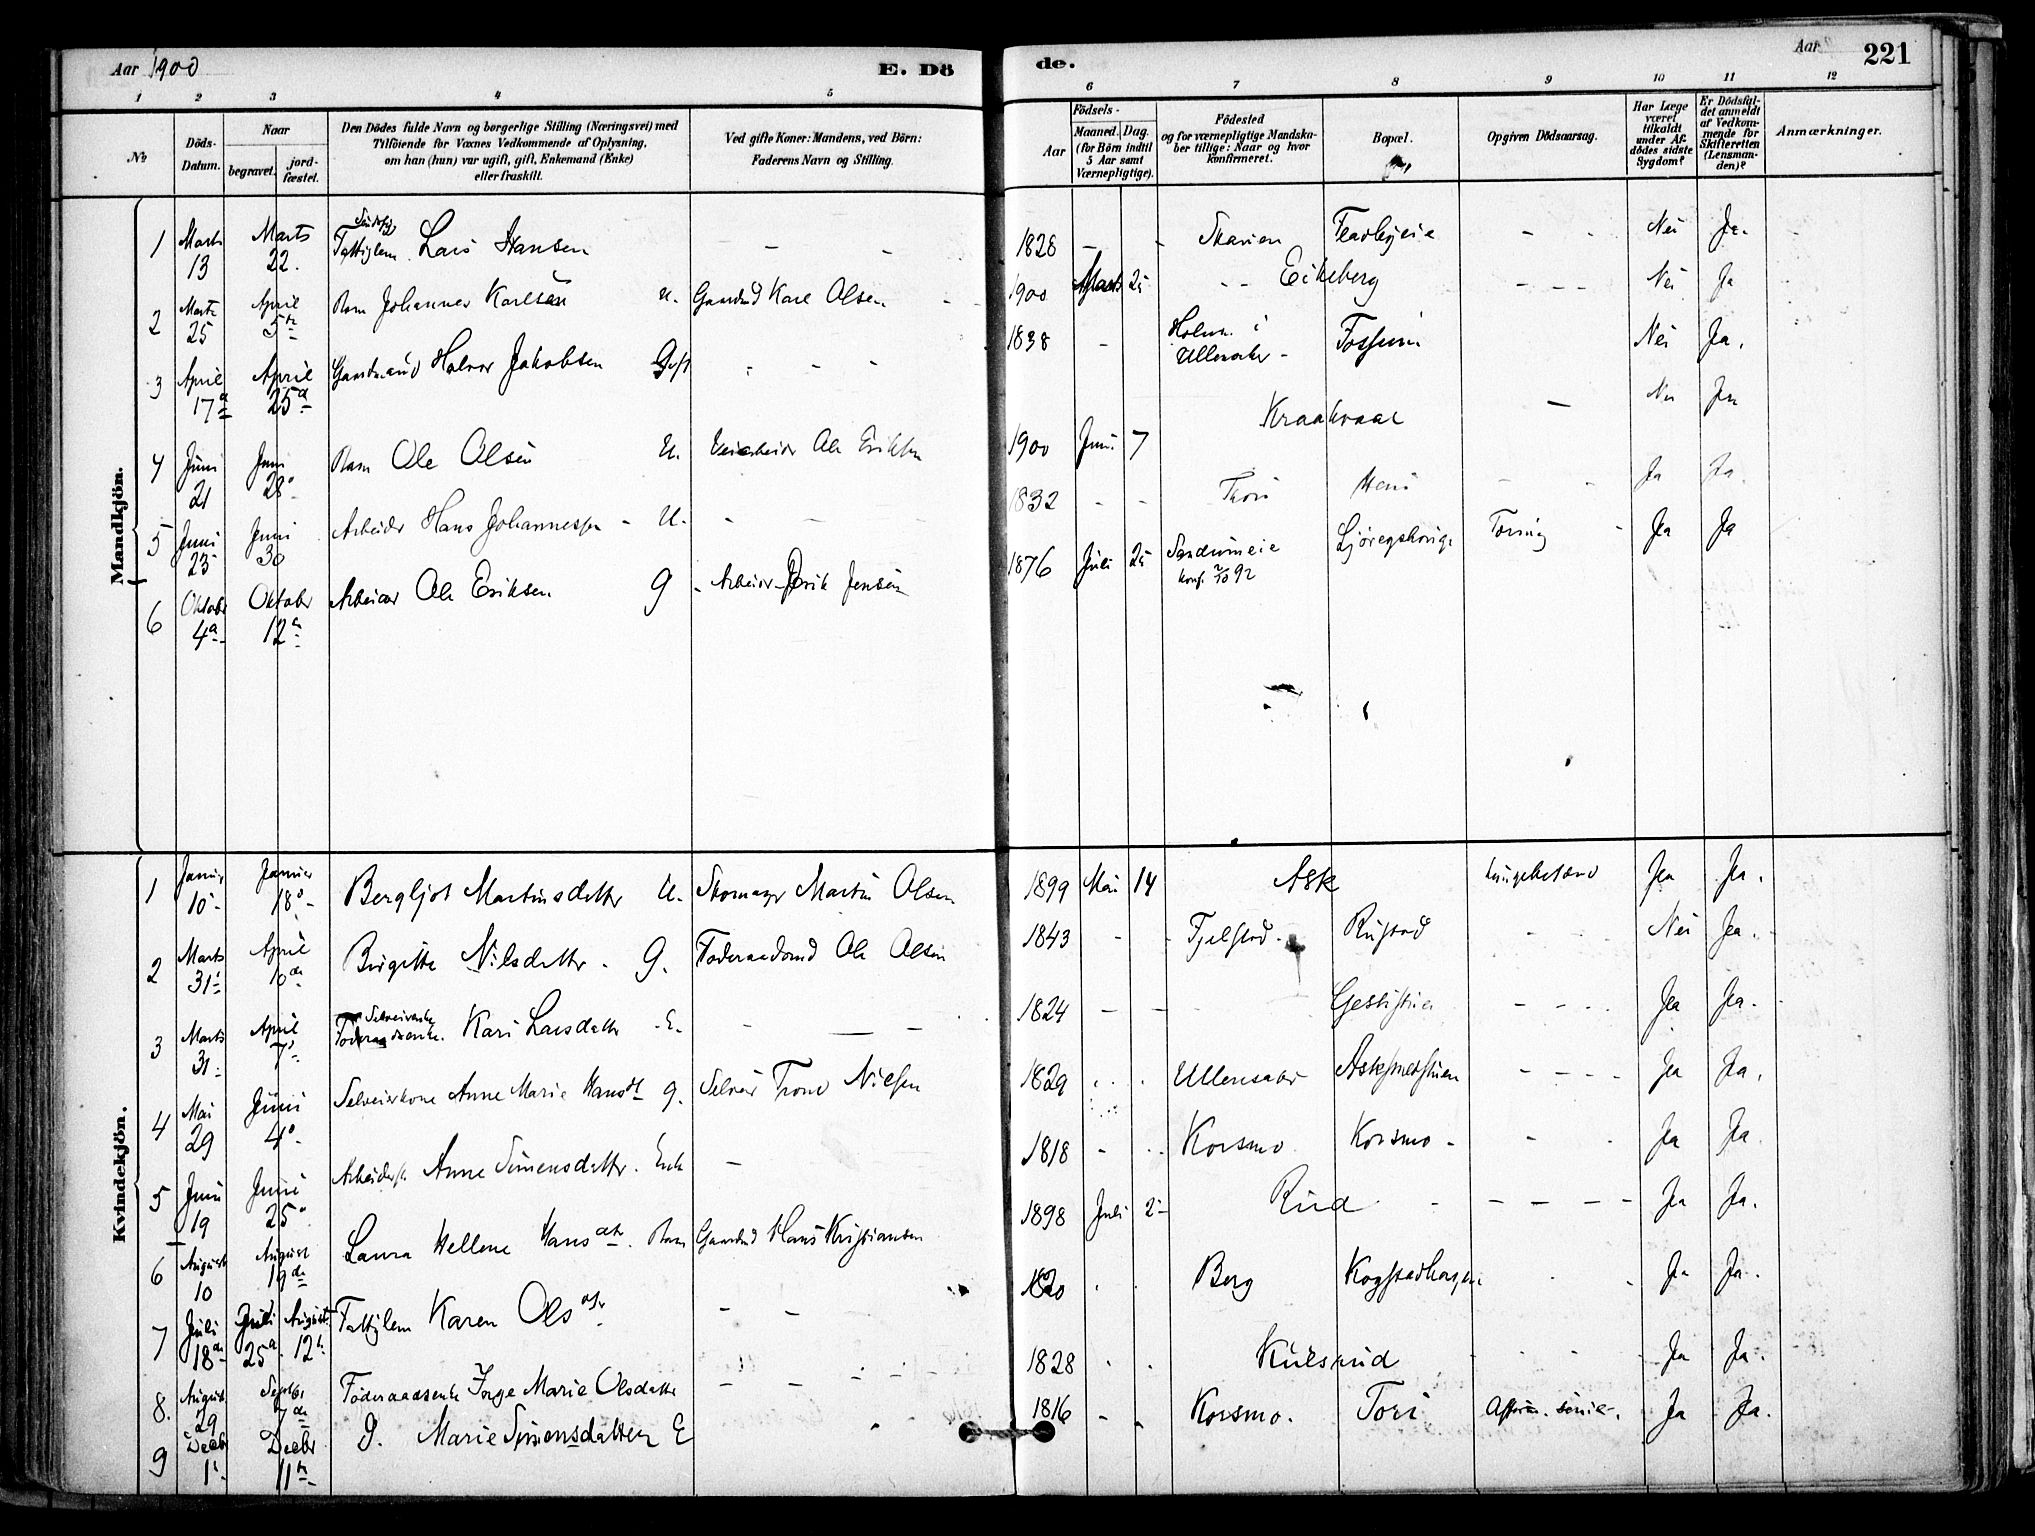 Aar 1900 E. Dö
de. Aar 221
1 2 3 4 5
6 7 8 9 10 11 12
No
Döds-Datum.
Naar
begravet.
jord-fæstet.
Den Dödes fulde Navn og borgerlige Stilling (Næringsvei) med
Tilföiende for Voxnes Vedkommende af Oplysning,
om han (hun) var ugift, gift, Enkemand (Enke)
eller fraskilt.
Ved gifte Koner: Mandens, ved Börn:
Faderens Navn og Stilling.
Födsels-
Aar
Maaned. Dag.
(for Börn indtil
5 Aar samt
Værnepligtige).
Födested
og for værnepligtige Mandska-
ber tillige: Naar og hvor
konfirmeret.
Bopæl.
Opgiven Dödsaarsag.
Har Læge
været
tilkaldt
under Af-
dödes sidste
Sygdom?
Er Dödsfal-
det anmeldt
af Vedkom-
mende for
Skifteretten
(Lensman-
den)?
Anmærkninger.
Mandkjön.
1 Marts 13 Marts 22. Fattiglem Lars Hansen - - 1828 - - Nei Ja.
2 Marts 25 April 5te Barn Johannes Karlsen u. Gaardmd Karl Olsen 1900 Marts 25 - - Eikeberg - - - Nei Ja
3 April 17de April 25de Gaardmand Halvor Jakobsen Gift - - - 1838 - Holm i Ullensaker - Fossum Nei Ja.
4 Juni 21 Juni 28de Barn Ole Olsen U. Veiarbeider Ole Eriksen 1900 Juni 7 Kraakvaal - Nei Ja
5 Juni 23 Juni 30 Arbeider Hans Johannessen - U. - 1832 - - Ja Ja.
6 Oktober 4de Oktober 12te Arbeider Ole Eriksen G - Arbeider Erik Jensen 1876 Juli 25 Sandumeie konf. 2/10 92 Tæring Ja Ja
Kvindekjön.
1 Januar 10de Januar 18de Bergljot Martinsdatter U. Skomager Martin Olsen 1899 Mai 14 Ask Lungebetænd Ja Ja.
2 Marts 31te April 10de Birgitte Nilsdatter - G. Föderaadsmd Ole Olsen 1843 - - Fjelstad - Rustad - - Nei Ja.
3 Marts 31. April 7de Selveierenke Kari Larsdatter - E. - - - 1824 - - - - - Ja Ja.
4 Mai 29 Juni 4de Selveierkone Anne Marie Hansdt G. Selveier Trond Nielsen 1829 Ullensaker - - - - Ja Ja.
5 Juni 19 Juni 25de Anne Simensdatter. Enke - 1818 - - Korsmo Korsmo - - - Ja Ja.
6 August 10 August 19de Laura Hellene Hansdtr. Barn Gaardmd Hans Kristiansen 1898 Juli 2 - Rud - - - - - Ja Ja.
7 Juli 18de Juli 25de August 12te Fattiglem Karen Olsdtr. - - 1820 - Berg Kogstadhagen - - Ja Ja.
8. August 29 Septbr 7de Föderaadsenke Inge Marie Olsdatter - - - - 1828 - - Kulsrud - - - Ja Ja.
9 Decbr 1te Decbr 11te Do. Marie Simensdatter E 1816 - - Korsmo. Tori Ja Ja.